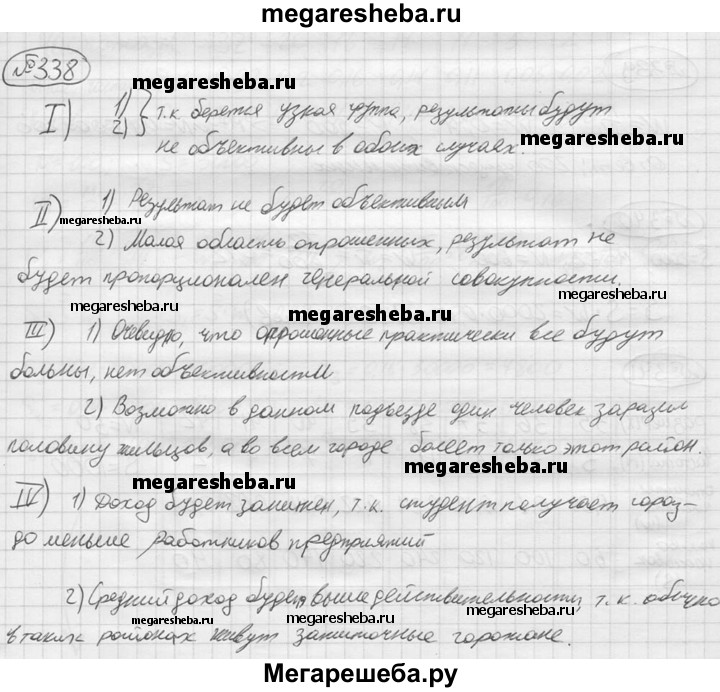 megaresheba.ru
№338
megaresheba.ru
I) 1) 2) } т.к. берется узкая группа, результаты будут
megaresheba.ru
не объективны в обоих случаях.
II) 1) Результат не будет объективным
megaresheba.ru
2) Малая область опрошенных, результат не
будет пропорционален генеральной совокупности.
megaresheba.ru
megaresheba.ru
III) 1) Очевидно, что опрошенные практически все будут
megaresheba.ru
больны, нет объективности
2) Возможно в данном подъезде один человек заразил
половину жильцов, а во всем городе болеет только этот район.
megaresheba.ru
megaresheba.ru
IV) 1) Доход будет занижен, т.к. студент получает гораз-
до меньше работников предприятий
megaresheba.ru
2) Средний доход будет выше действительности, т.к. обычно
megaresheba.ru
в таких районах живут зажиточные горожане.
megaresheba.ru
megaresheba.ru
Мегарешеба.ру